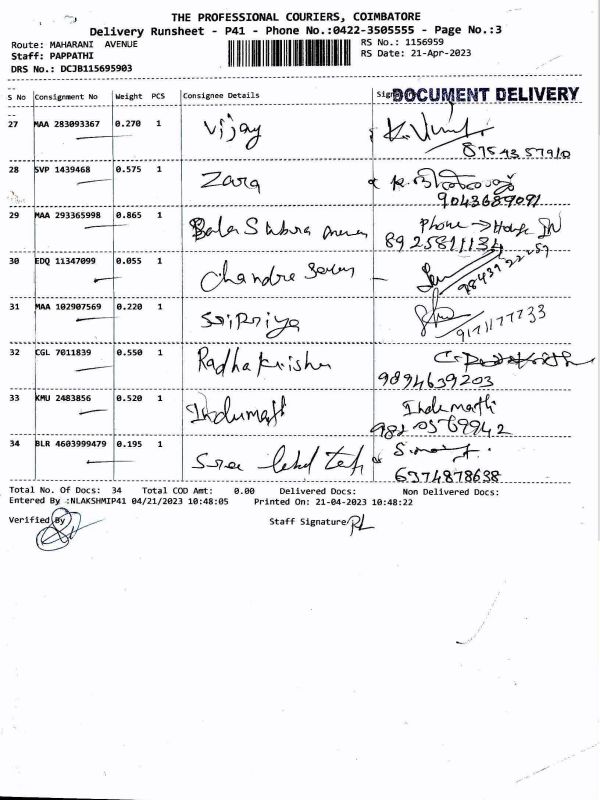 THE PROFESSIONAL COURIERS, COIMBATORE
Delivery Runsheet - P41 - Phone No.:0422-3505555 - Page No.:3
Route: MAHARANI AVENUE RS No.: 1156959
Staff: PAPPATHI RS Date: 21-Apr-2023
DRS No.: DCJB115695903
DOCUMENT DELIVERY
S No Consignment No Weight PCS Consignee Details
27 MAA 283093367 0.270 1 Vijay
8754357910
28 SVP 1439468 0.575 1 Zara
9043689091
29 MAA 293365998 0.865 1 Bala Phone → House
8925811134
30 EDQ 11347099 0.055 1 Chandra
31 MAA 102907569 0.220 1 SriPriya
9171177733
32 CGL 7011839 0.550 1 Radhakrishn
9894639203
33 KMU 2483856 0.520 1 Indumathi Indumathi
34 BLR 4603999479 0.195 1 Sree
6374878638
Total No. Of Docs: 34 Total COD Amt: 0.00 Delivered Docs: Non Delivered Docs:
Entered By :NLAKSHMIP41 04/21/2023 10:48:05 Printed On: 21-04-2023 10:48:22
Verified By Staff Signature